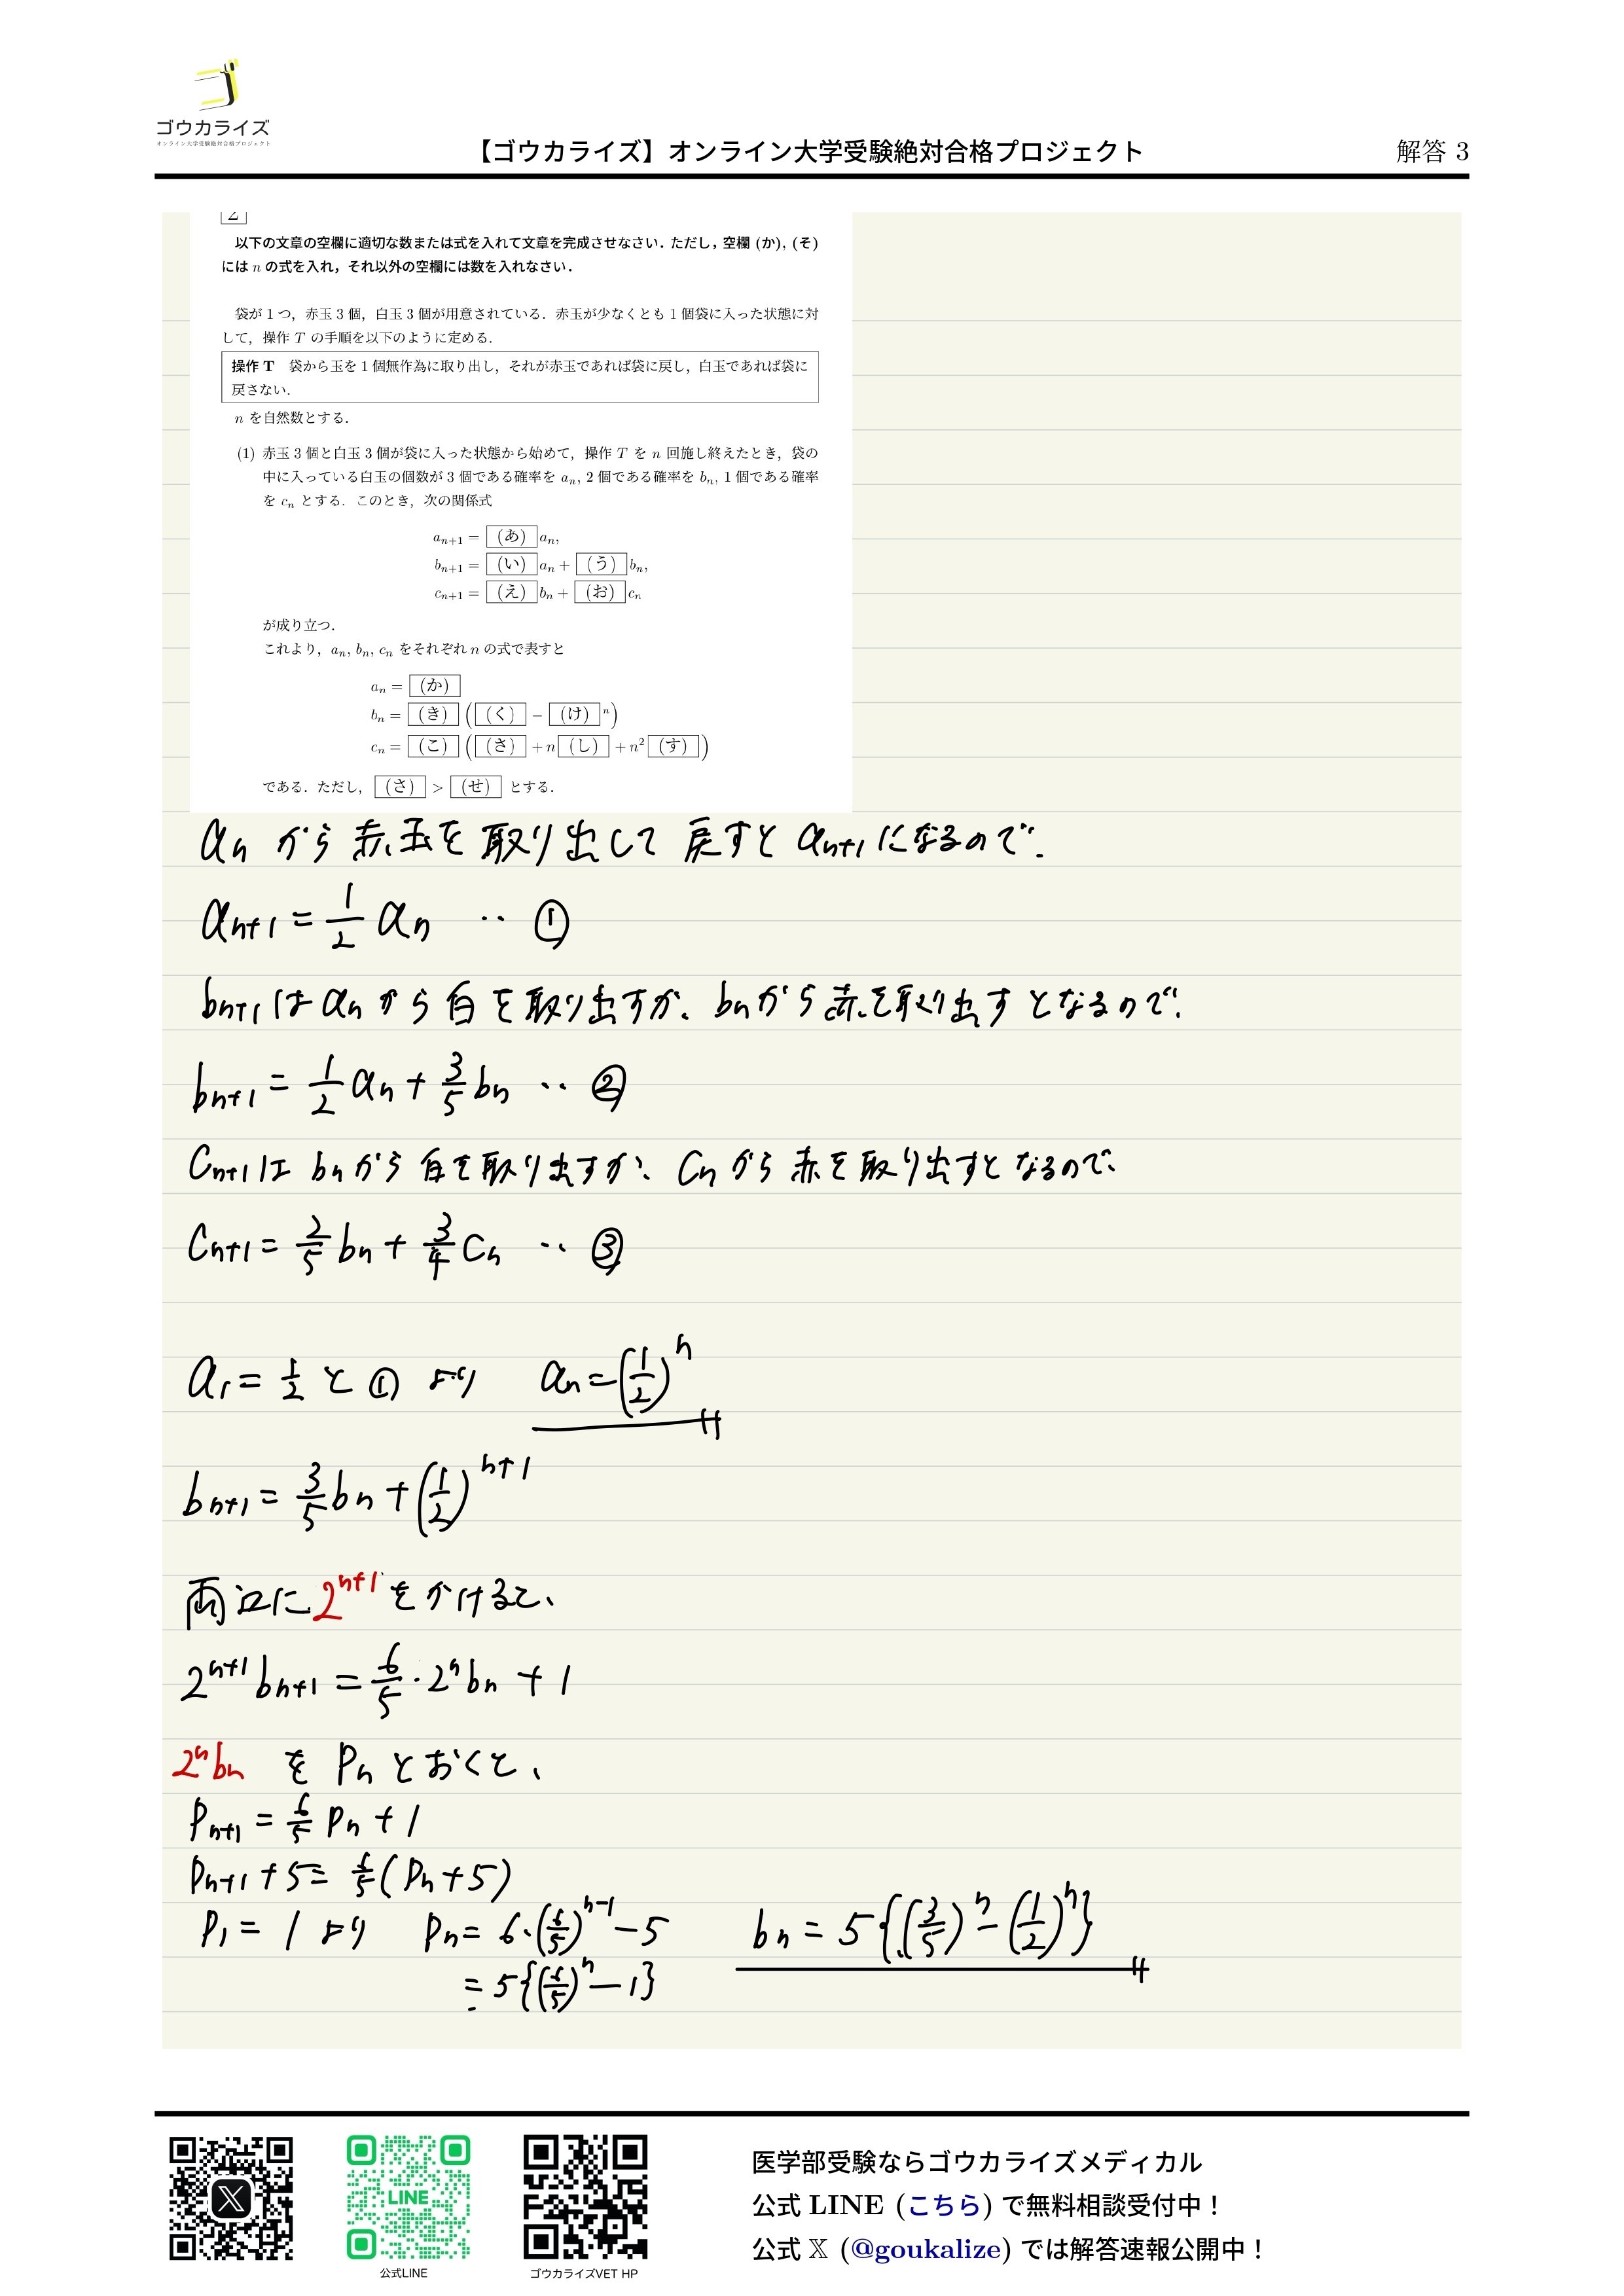 ゴウカライズ
オンライン大学受験絶対合格プロジェクト
【ゴウカライズ】オンライン大学受験絶対合格プロジェクト
解答 3
2
以下の文章の空欄に適切な数または式を入れて文章を完成させなさい．ただし，空欄 (か)，(そ)
には n の式を入れ，それ以外の空欄には数を入れなさい．
袋が 1 つ，赤玉 3 個，白玉 3 個が用意されている．赤玉が少なくとも 1 個袋に入った状態に対
して，操作 T の手順を以下のように定める．
操作 T　袋から玉を 1 個無作為に取り出し，それが赤玉であれば袋に戻し，白玉であれば袋に
戻さない．
n を自然数とする．
(1) 赤玉 3 個と白玉 3 個が袋に入った状態から始めて，操作 T を n 回施し終えたとき，袋の
中に入っている白玉の個数が 3 個である確率を aₙ, 2 個である確率を bₙ, 1 個である確率
を cₙ とする．このとき，次の関係式
aₙ₊₁ = (あ) aₙ,
bₙ₊₁ = (い) aₙ + (う) bₙ,
cₙ₊₁ = (え) bₙ + (お) cₙ
が成り立つ．
これより，aₙ, bₙ, cₙ をそれぞれ n の式で表すと
aₙ = (か)
bₙ = (き) ( (く) − (け) ⁿ)
cₙ = (こ) ( (さ) + n (し) + n² (す) )
である．ただし， (さ) > (せ) とする．
aₙ から 赤玉を 取り出して 戻すと aₙ₊₁ になるので.
aₙ₊₁ = 1/2 aₙ ‥ ①
bₙ₊₁は aₙ から 白を取り出すか、bₙから赤を取り出すとなるので、
bₙ₊₁ = 1/2 aₙ + 3/5 bₙ ‥ ②
Cₙ₊₁は bₙから 白を取り出すか、Cₙ から 赤を取り出すとなるので、
Cₙ₊₁ = 2/5 bₙ + 3/4 Cₙ ‥ ③
a₁ = 1/2 と ① より aₙ = (1/2)ⁿ
bₙ₊₁ = 3/5 bₙ + (1/2)ⁿ⁺¹
両辺に 2ⁿ⁺¹ をかけると、
2ⁿ⁺¹ bₙ₊₁ = 6/5 · 2ⁿ bₙ + 1
2ⁿbₙ を Pₙ とおくと、
Pₙ₊₁ = 6/5 Pₙ + 1
Pₙ₊₁ + 5 = 6/5 (Pₙ + 5)
P₁ = 1 より Pₙ = 6·(6/5)ⁿ⁻¹ − 5
= 5{(6/5)ⁿ − 1}
bₙ = 5{(3/5)ⁿ − (1/2)ⁿ}
LINE
公式LINE
ゴウカライズVET HP
医学部受験ならゴウカライズメディカル
公式 LINE (こちら) で無料相談受付中！
公式 𝕏 (@goukalize) では解答速報公開中！